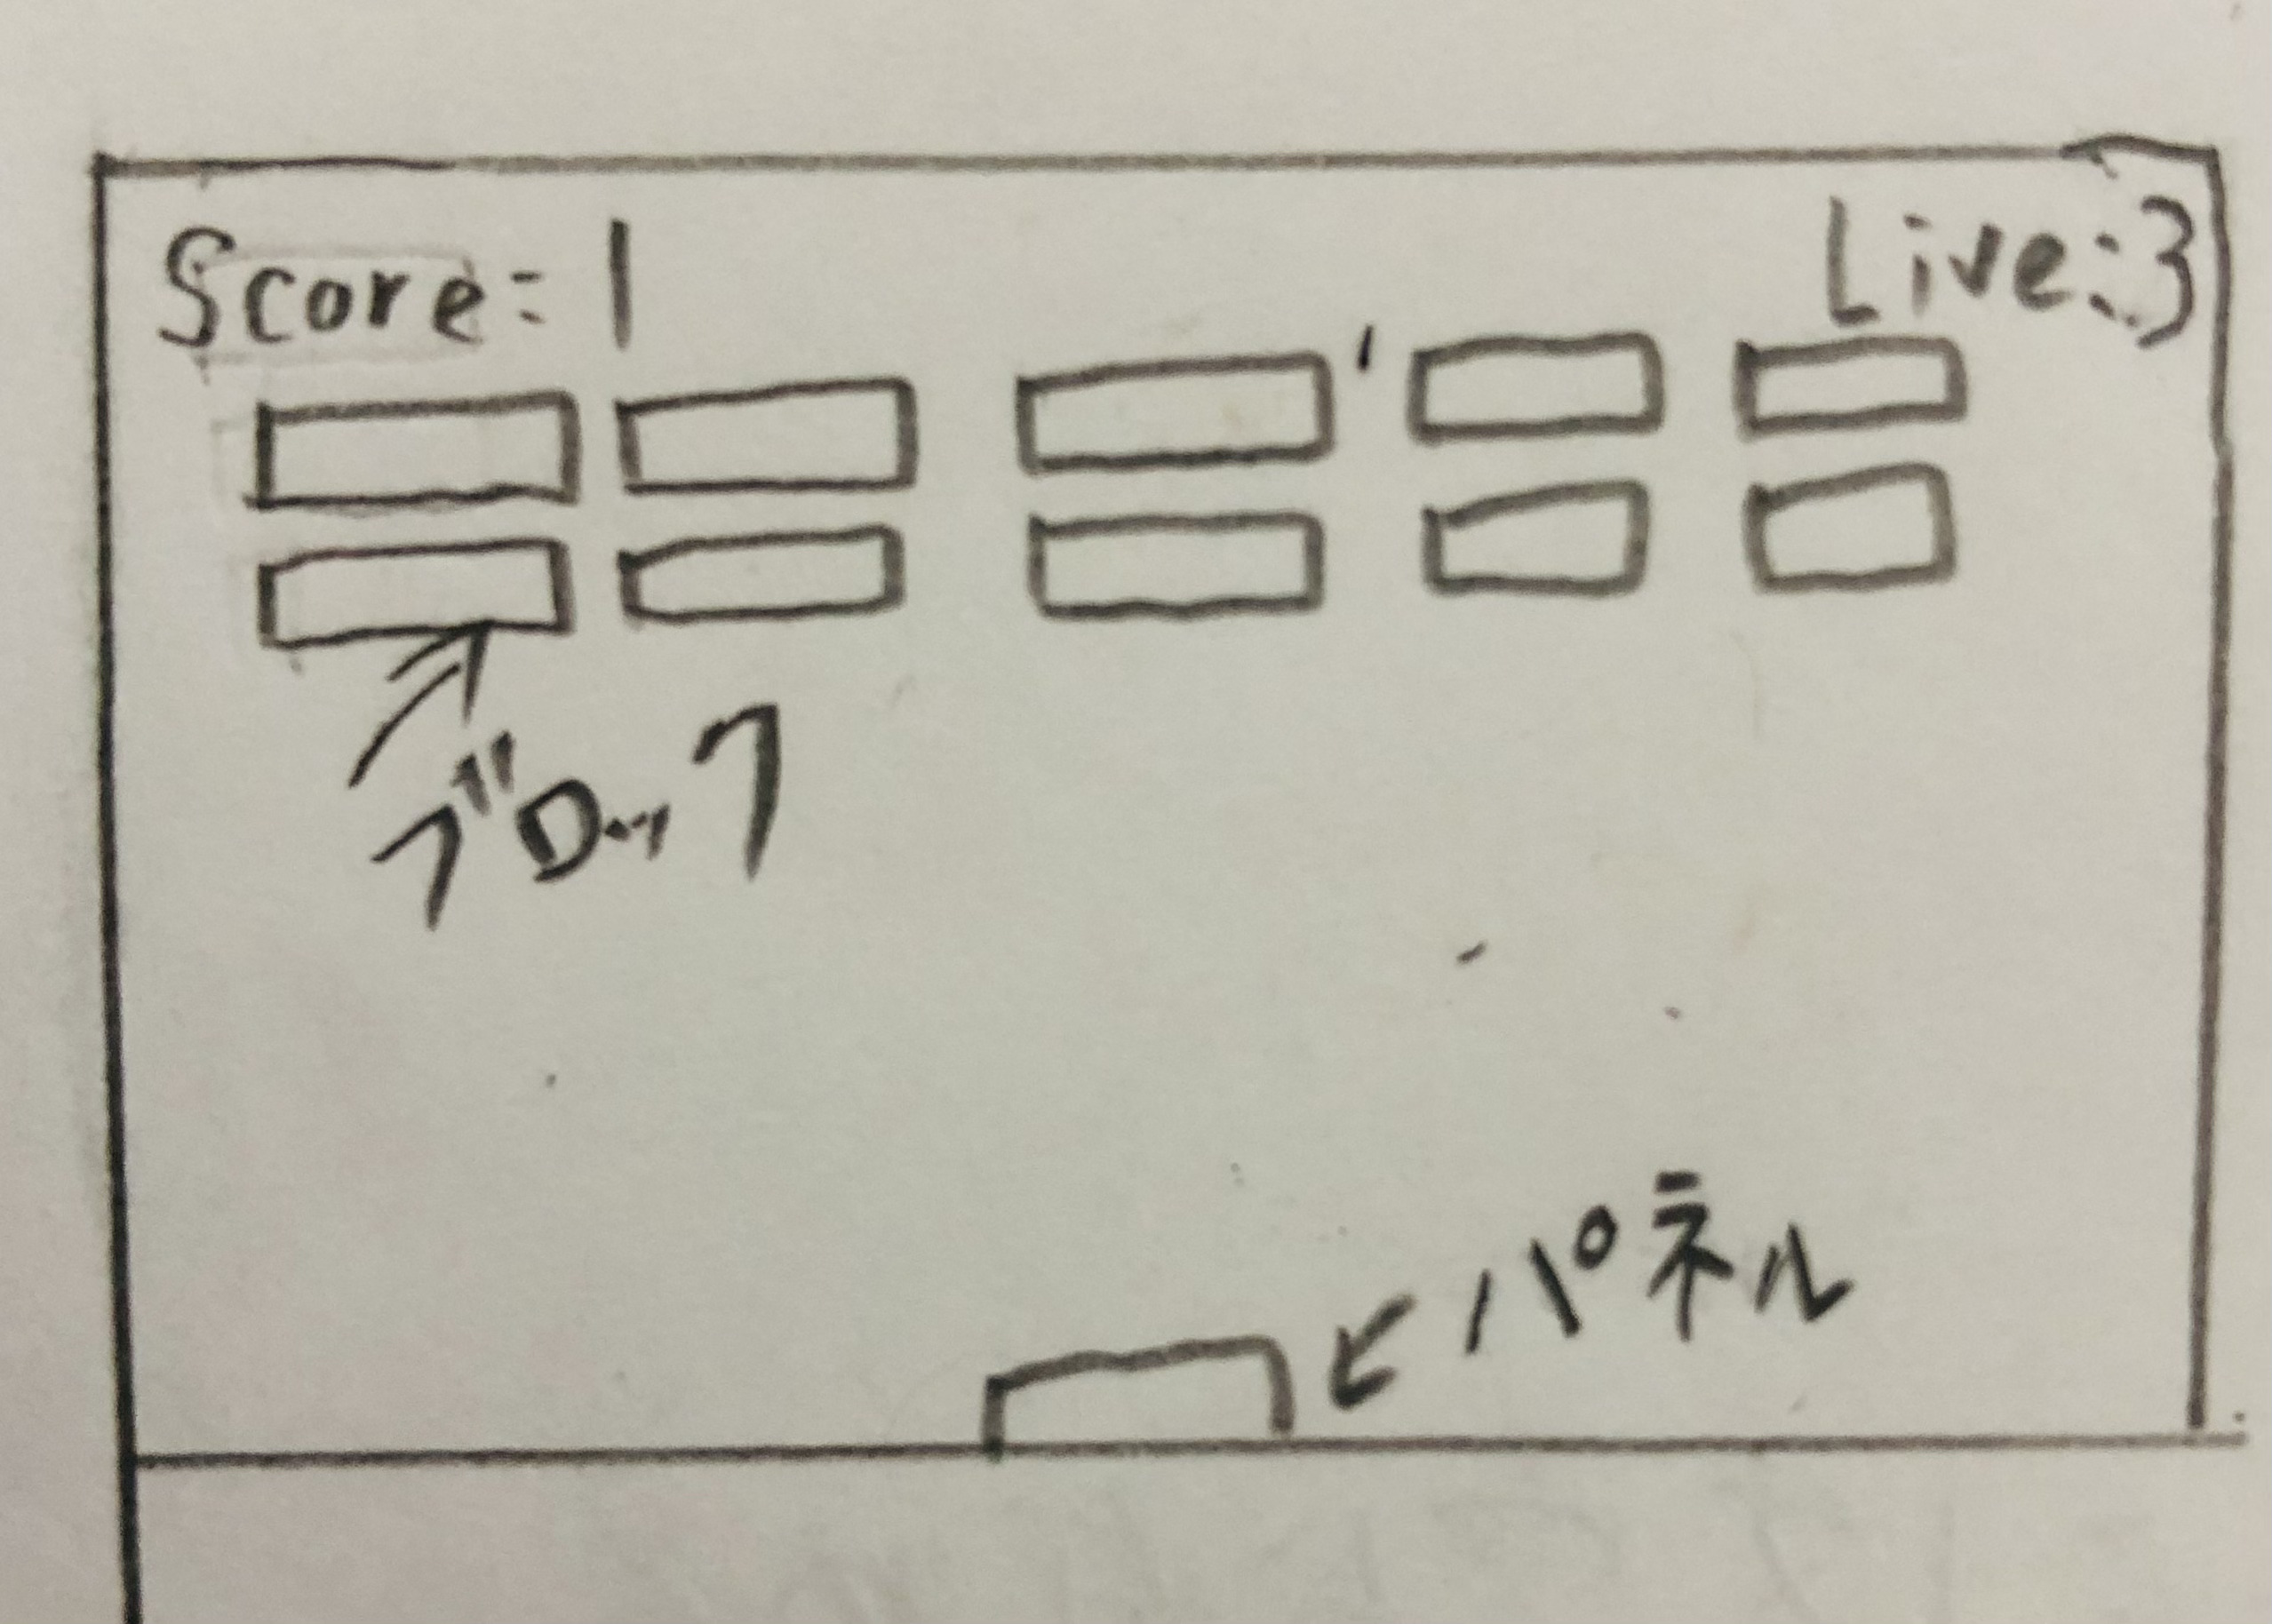 Score: 1
Live:3
ブロック
パネル